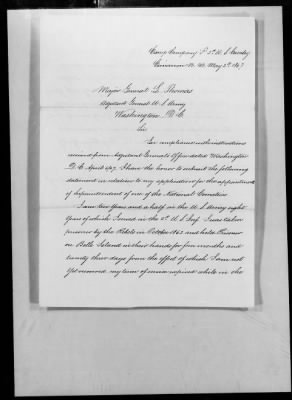 Camp Company F 3d U. S. Cavalry
Cimarron N. M. May 3d 1867
Major General L. Thomas
Adjutant General U. S. Army
Washington D. C.
Sir
In compliance with instructions
received from Adjutant Generals Office dated Washington
D. C. April 1867. I have the honor to submit the following
statement in relation to my application for the appointment
of Superintendent of one of the National Cemeteries
I am two years and a half in the U. S. Army eight
years of which I served in the 4th U. S. Inf. I was taken
prisoner by the Rebels in October 1863 and held Prisoner
on Belle Island in their hands for five months and
twenty three days from the effect of which I am not
yet recovered my term of service expired while in the